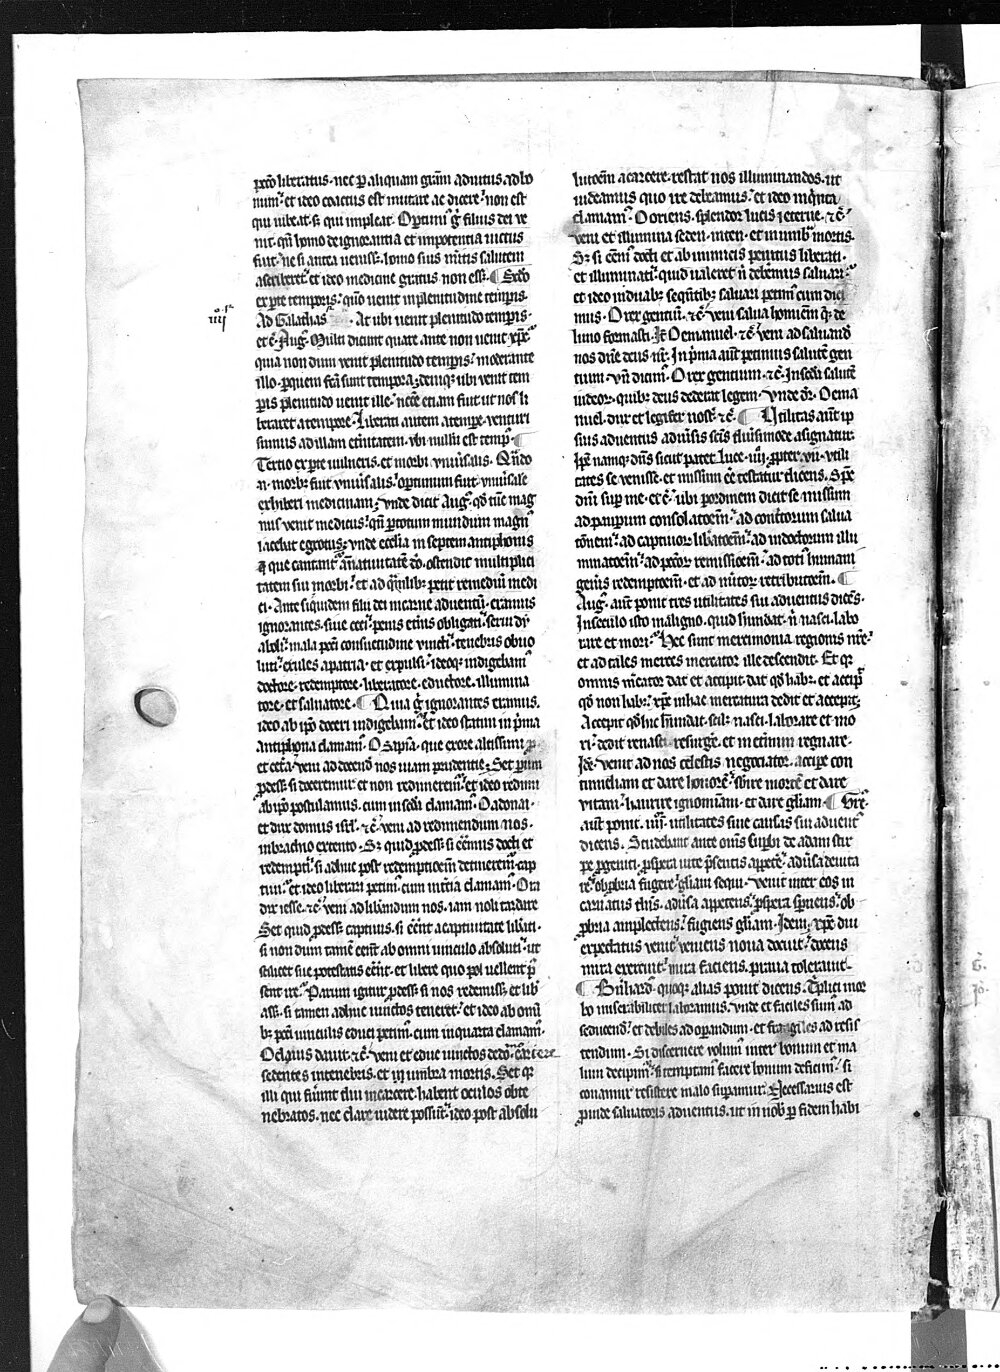 pecco liberatus. nec p aliquam gram adiutus. ad lo
num. et ideo coactus est mutare ac dicere. non est
qui iubeat. s; qui impleat. Optimi g filius dei ve
nit. qn homo de ignorantia et impotentia uictus
fuit. ne si antea uenisset. homo suis mitis salutem
ascriberet. et ideo medicine gratus non esset. ¶ Scdo
ex pte temporis. quo uenit in plenitudine tempis.
Ad Galathas iiij At ubi uenit plenitudo tempis.
et c. Aug. Multi dicunt quare ante non uenit xps.
quia non dum venit plenitudo tempis. moderante
illo. p quem fca sunt tempora. deniq; ubi venit tem
pis plenitudo uenit ille. necce etiam fuit ut nos li
beraret a tempore. Liberati autem a tempe. venturi
sumus ad illam etnitatem. vbi nullu est temp. ¶
Tertio ex pte uulneris. et morbi vniuisalis. Qndo
n. morb; fuit vniuisalis. optimum fuit vniuisale
exhiberi medicinam. vnde dicit Aug. qd tuc mag
nus venit medicus. qn p totum mundum magn
iacebat egrotus. vnde ecclia in septem antiphonis
que cantant an natiuitate do. ostendit multiplici
tatem sui morbi. et ad qmlib; petit remediu medi
ci. Ante siquidem filii dei incarne aduentu. eramus
ignorantes. siue ceci. penis etnis obligati. serui dy
aboli. mala pcci consuetudine vincti. tenebris obuo
luti. exules a patria. et expulsi. ideoq; indigebam
doctore. redemptore. liberatore. eductore. illumina
tore. et saluatore. ¶ Quia g ignorantes eramus.
ideo ab ipo doceri indigebam. et ideo statim in pma
antiphona clamam. O sapia. que ex ore altissimi p
et cetra. veni ad docend nos uiam prudentie. Set pum
pdesset si doceremur et non redimerem. et ideo redimi
ab ipo postulamus. cum in scda clamam. O adonai.
et dux domus isrl. ec. veni ad redimendum nos.
in brachio extento. S; quid pdesset si eemus docti et
redempti. si adhuc post redemptioem detineremur cap
tiui. et ideo liberari petim. cum in tcia clamam. O ra
dix iesse. ec. veni ad libandum nos. iam noli tardare
Set quid pdesset captiuis. si eent a captiuitate libati.
si non dum tame eent ab omni uinculo absoluti. ut
scilicet sue potestatis eent. et libere quo pol uellent p
sent ire. Parum igitur pdesset si nos redemisset et lib
asset. si tamen adhuc iunctos teneret. et ideo ab omi
b; pcci uinculis educi petim. cum in quarta clamam.
O clauis dauit. ec. veni et educ uinctos de do. carcere
sedentes in tenebris. et in umbra mortis. Set q
illi qui fuunt diu in carcere. habent oculos obte
nebratos. nec clare uidere possunt. ideo post absolu
lutoem a carcere. restat nos illuminandos. ut
uideamus quo ire debeamus. et ideo in qinta
clamam. O oriens. splendor lucis eterne. ec.
veni et illumina seden. in ten. et in umb mortis.
S; si eem docti et ab inimicis penitus liberati.
et illuminati. quid ualeret n deberemus saluari.
et ideo in duab; sequntib; saluari petim cum dici
mus. O rex gentiu. ec. veni salua hominem q de
limo formasti. It O emanuel. ec. veni ad saluand
nos dne deus nr. In pma aut petimus salute gen
tium. vn dicim. O rex gentium. ec. In scda salute
iudeor. quib; deus dederat legem. vnde dr. O ema
nuel. dux et legifer nost. ec. ¶ Utilitas aut ip
sius aduentus a diuisis scis diuisimode asignatur.
Ipe namq; dns sicut patet Luce. iiij. ppter. vii. vtili
tates se venisse. et missum ee testatur dicens. Spc
dni sup me. et c. ubi p ordinem dicit se missum
ad pauperum consolatoem. ad contitorum salua
tonem. ad captiuor libatoem. ad indoctorum illu
minatoem. ad pccor remissioem. ad toti humani
genis redemptoem. et ad mitor retributoem. ¶
Aug. aut ponit tres utilitates sui aduentus dices.
In seculo isto maligno. quid habundat. n nasci. labo
rare et mori. Hec sunt mercimonia regionis nre.
et ad tales merces mercator ille descendit. Et q
omnis mcator dat et accipit. dat qd hab;. et accip
qd non hab;. xps in hac mercatura dedit et accepit.
Accepit qd hic habundat. scil; nasci. laborare et mo
ri. dedit renasci. resurge. et in etnum regnare.
Ide. venit ad nos celestis negociator. accipe con
tumeliam et dare honore. sbire morte et dare
vitam. haurire ignominiam. et dare gliam. ¶ Gre.
aut ponit. iiij. utilitates siue causas sui aduent
dicens. Studebant aute omis supbi de adam stir
pe pgeniti. pspera uite psentis appete. aduisa deuita
re. obpbria fugere. gliam sequi. venit inter eos in
carnatus dns. aduisa appetens. pspera spnens. ob
pbria amplectens. fugiens gliam. Idem. xps diu
expectatus venit. veniens noua docuit. docens
mira exercuit. mira faciens. praua tolerauit.
¶ Bnhard. quoq; alias ponit dicens. Tplici mor
bo miserabilit laboramus. vnde et faciles sum ad
seducend. et debiles ad opandum. et fragiles ad resis
tendum. Si discernere volum inter bonum et ma
lum decipim. si temptam facere bonum deficim. si
conamur resistere malo supamur. Necessarius est
pinde saluatoris aduentus. ut in nob p fidem habi